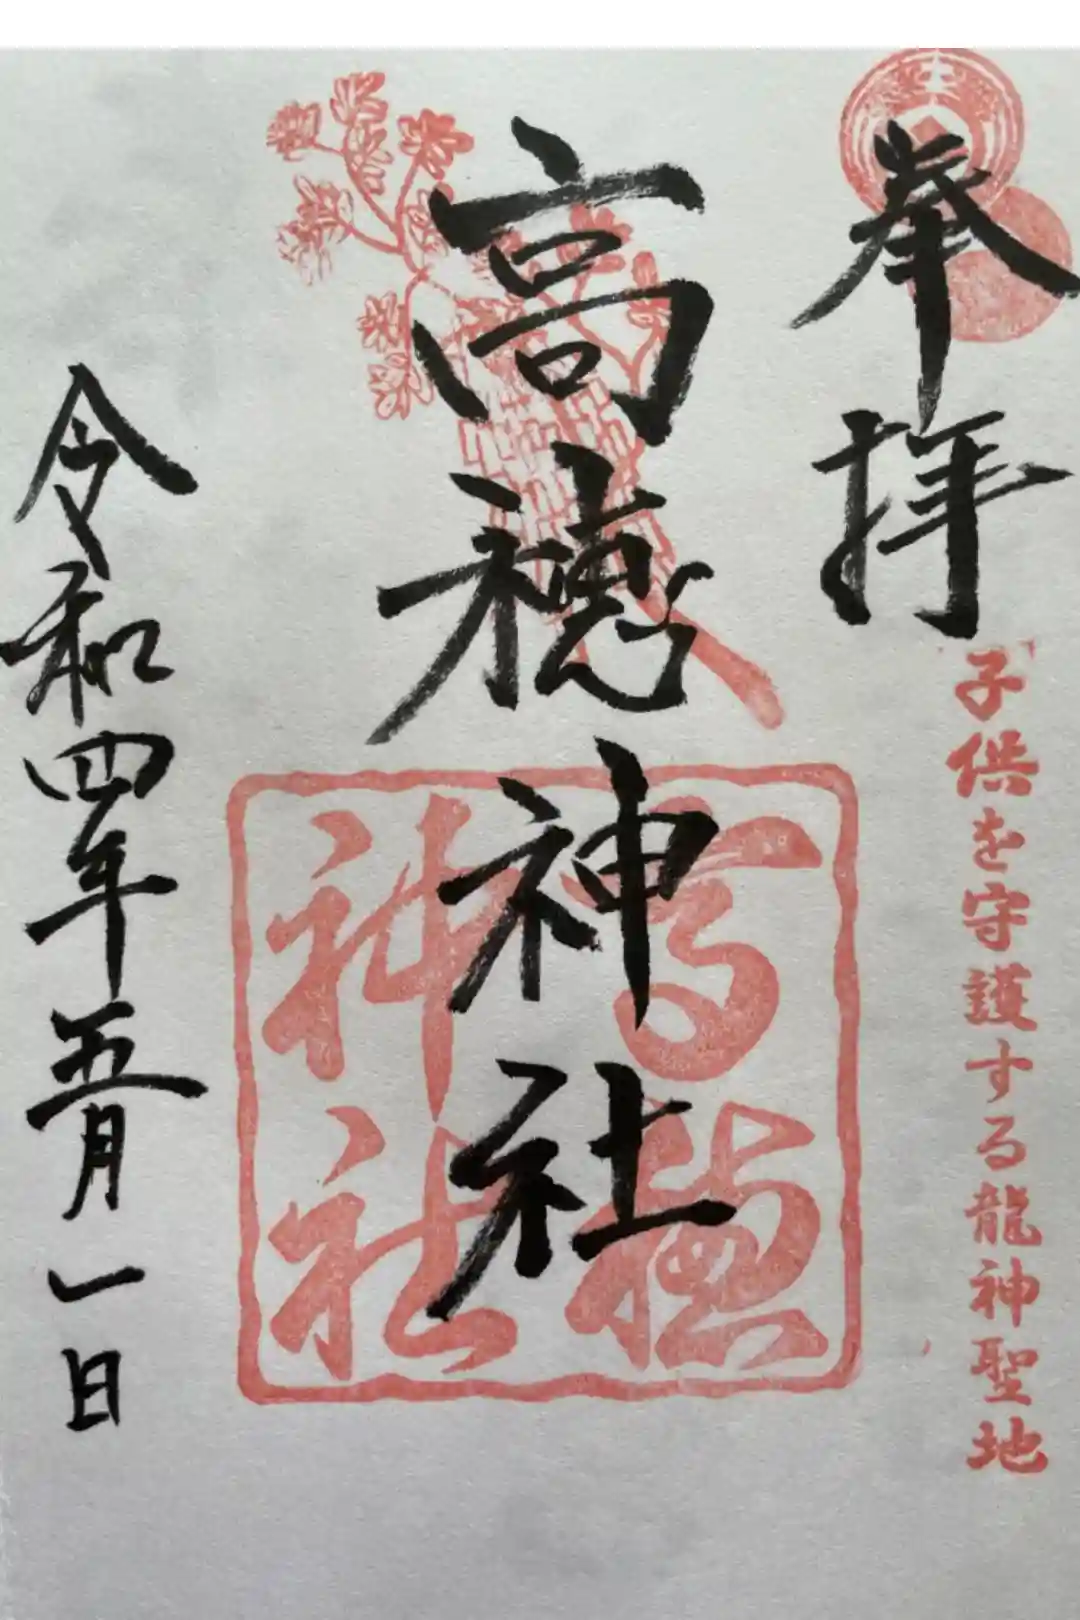 奉拝
子供を守護する龍神聖地
高穂神社
高穂
神社
令和四年五月一日